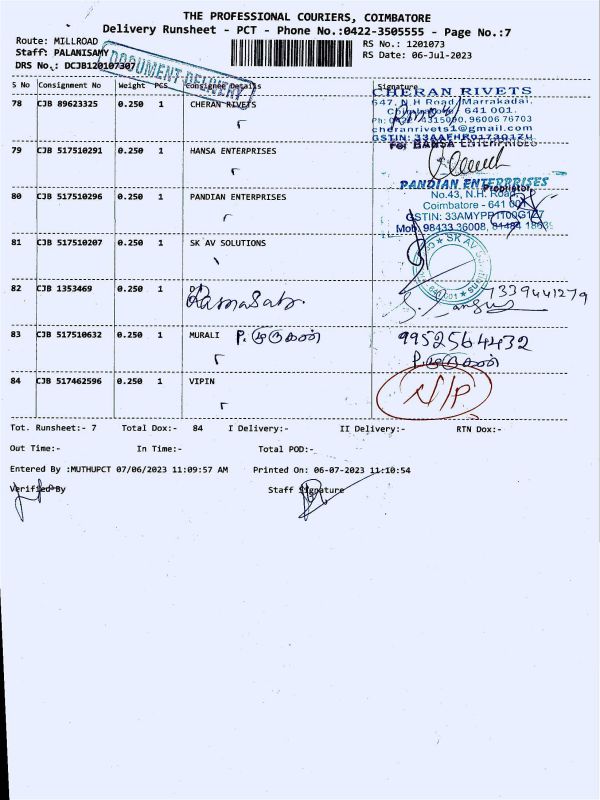 THE PROFESSIONAL COURIERS, COIMBATORE
Delivery Runsheet - PCT - Phone No.:0422-3505555 - Page No.:7
Route: MILLROAD
RS No.: 1201073
Staff: PALANISAMY
RS Date: 06-Jul-2023
DRS No.: DCJB120107307
DOCUMENT DELIVERY
S No Consignment No Weight PCS Consignee Details Signature
78 CJB 89623325 0.250 1 CHERAN RIVETS
CHERAN RIVETS
647, N H Road, Marrakadai,
Coimbatore - 641 001.
Ph: 0422 4315090, 96006 76703
cheranrivets1@gmail.com
79 CJB 517510291 0.250 1 HANSA ENTERPRISES
For HANSA ENTERPRISES
Proprietor
80 CJB 517510296 0.250 1 PANDIAN ENTERPRISES
PANDIAN ENTERPRISES
No.43, N.H. Road,
Coimbatore - 641 001
Mob: 98433 36008,
81 CJB 517510207 0.250 1 SK AV SOLUTIONS
SK AV
82 CJB 1353469 0.250 1
7339441279
83 CJB 517510632 0.250 1 MURALI P. முருகன்
9952564432
P. முருகன்
84 CJB 517462596 0.250 1 VIPIN
N/P
Tot. Runsheet:- 7 Total Dox:- 84 I Delivery:- II Delivery:- RTN Dox:-
Out Time:- In Time:- Total POD:-
Entered By :MUTHUPCT 07/06/2023 11:09:57 AM Printed On: 06-07-2023 11:10:54
Verified By Staff Signature